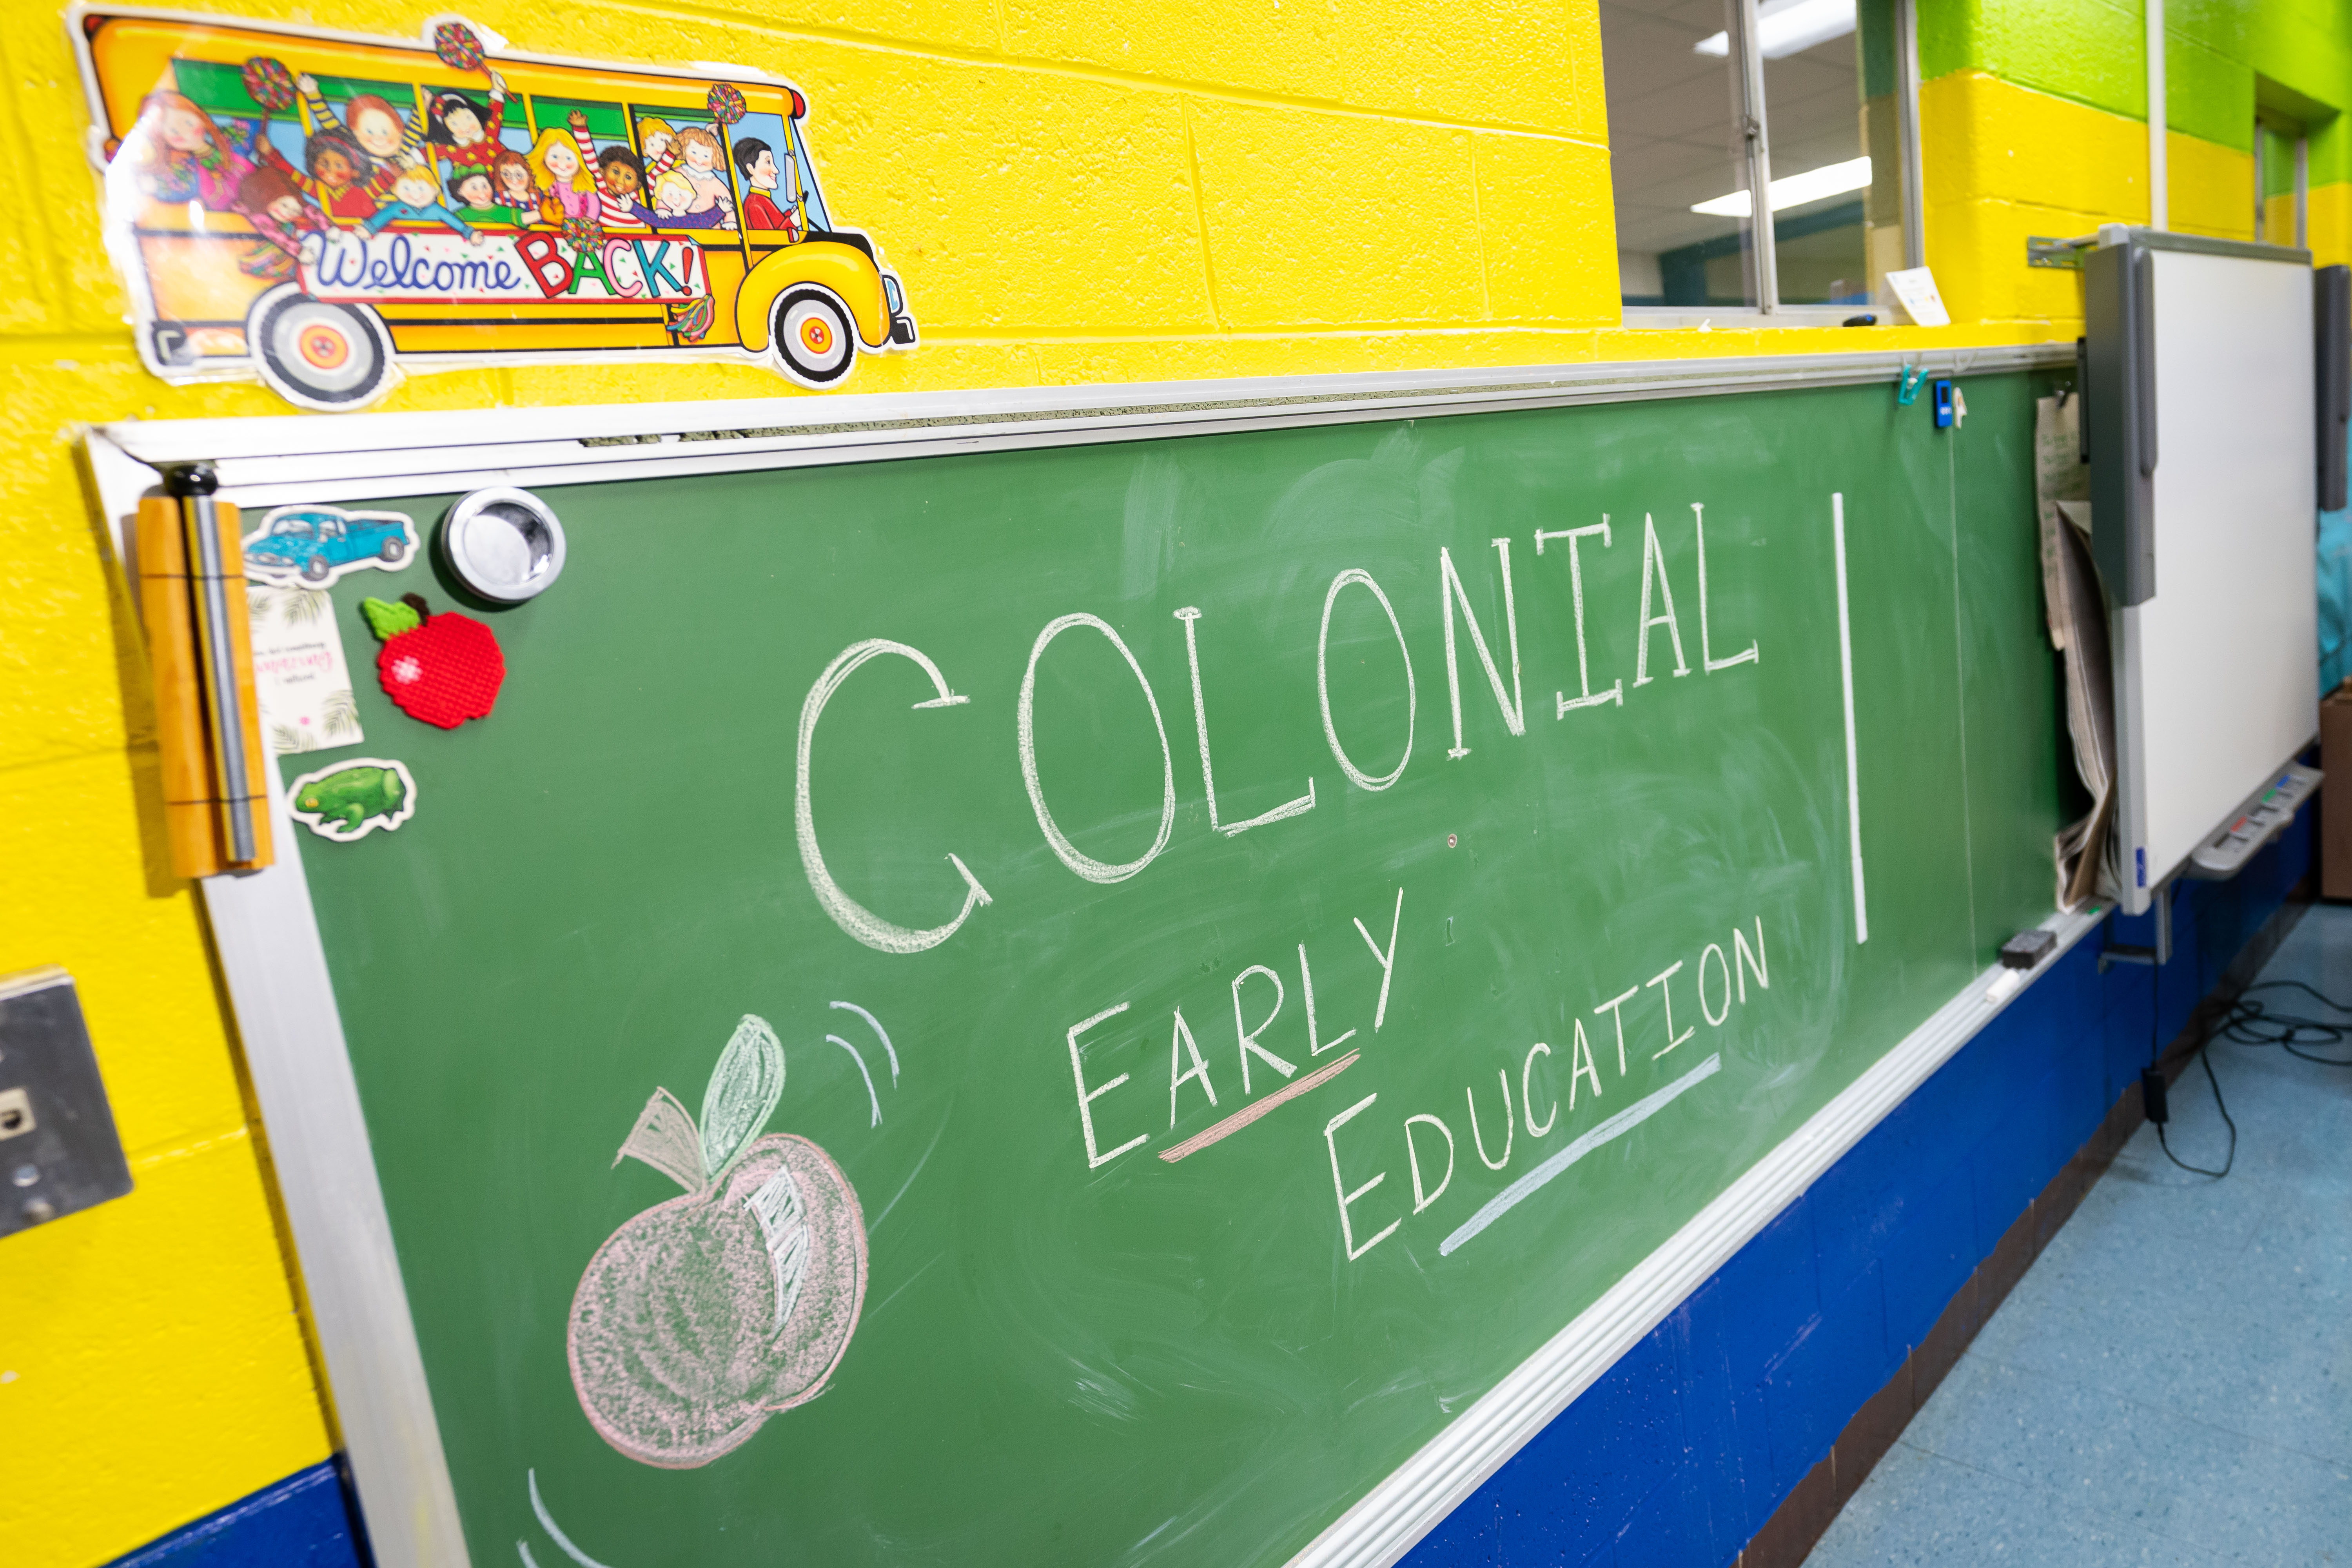 Welcome BACK!
COLONIAL
EARLY
EDUCATION